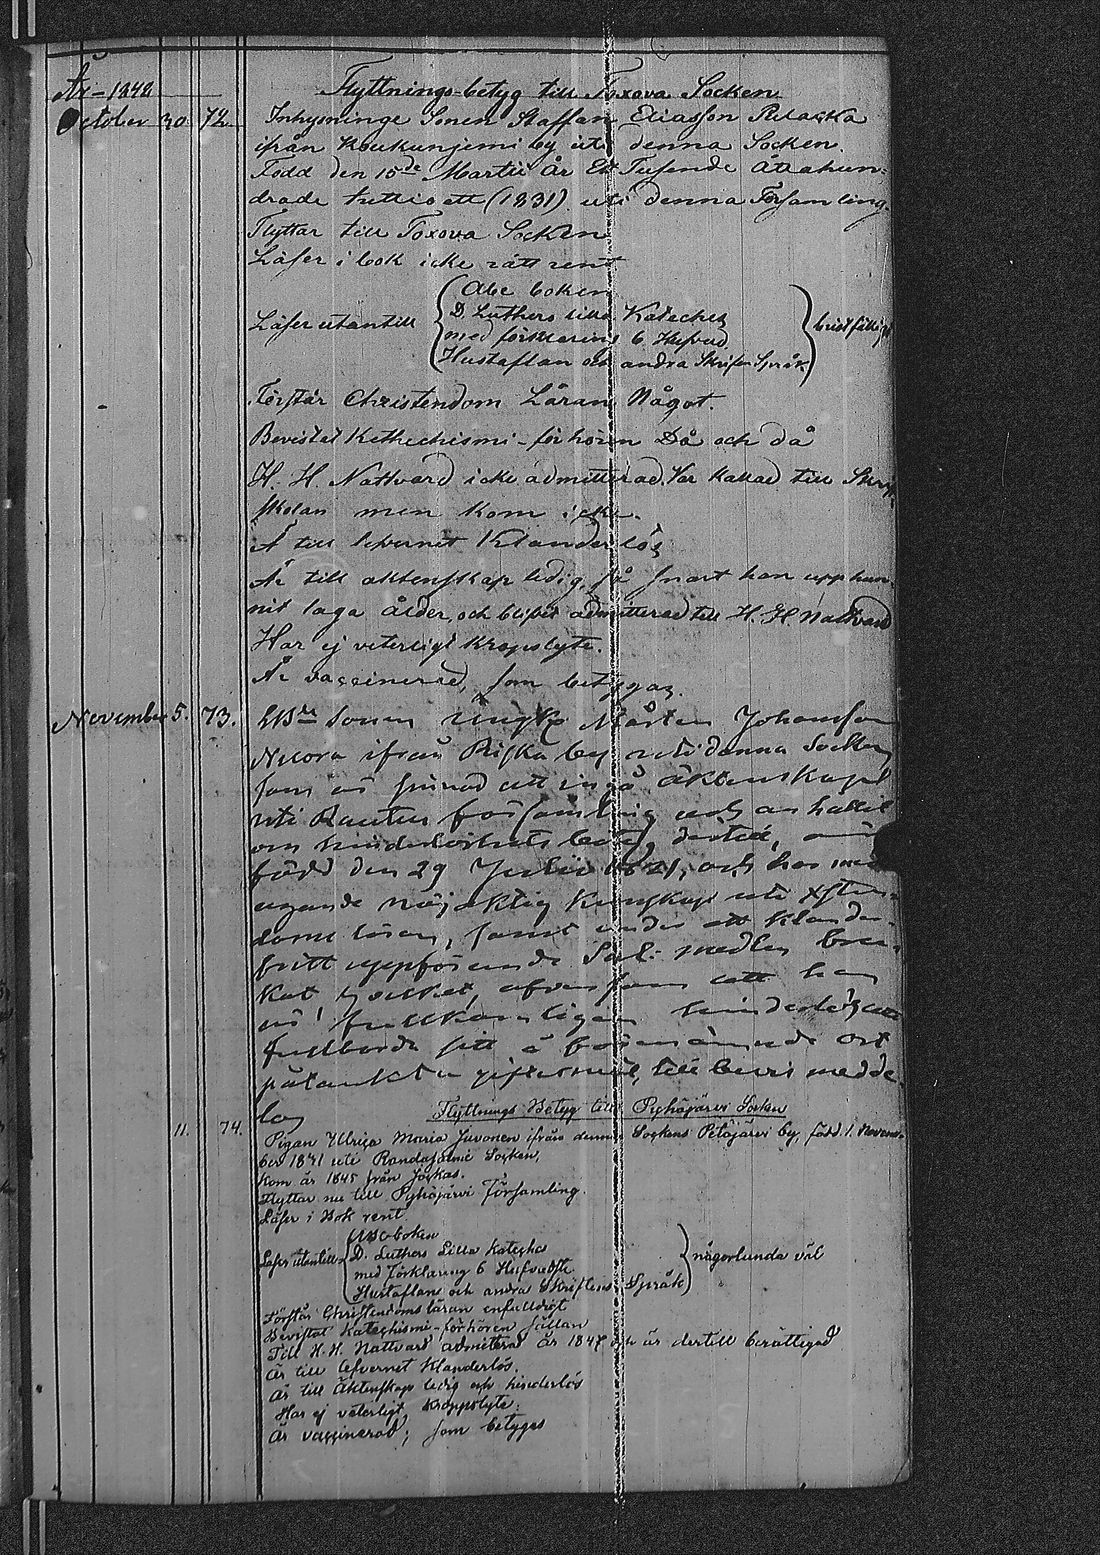 År 1848
Flyttnings-betyg till Toxova Socken
October 30. 72. Inhysninge Sonen Staffan Eliasson Pelaska
ifrån Koukunjemi by uti denna Socken.
Född den 15de Martii År Ett Tusende Åttahun-
drade trettioett (1831) uti denna Församling.
Flyttar till Toxova Socken
Läser i bok icke rätt rent
Abc boken
D. Luthers lilla Kateches
Läser utantill bristfälligt
med förklaring 6 Hufvud
Hustaflan och andra Skriften Språk
Förstår Christendom Läran Något.
Bevistat Kethechismi-förhören Då och då
H. H. Nattvard icke admitterad. Var kallad till Skrift
skolan men kom icke.
Ä till lefvernet Klanderlös
Är till äktenskap ledig, så snart han upphun
nit laga ålder, och blifvit admitterad till H. H. Nattvard
Har ej veterligt kropslyte.
Är vaccinerad, som betygas.
November 5. 73. Sonen Mårten Johansson
ifrån Riska by uti denna Socken
som är sinnad att ingå äktenskapet
uti Rautus församling och anhållit
om hinderlöshets betyg dertill, är
född den 29 Julii 1821, och har med
ägande nöjaktig kunskap uti Xsten-
doms läran, samt under ett klander-
fritt uppförande Sal: medlen bru-
kat äfvensom att han
är fullkomligen hinderlös att
fullborda sitt å förenämnde ort
påtänkta giftermål, till bevis medde-
las
Flyttnings Betyg till Pyhäjärvi Socken
11. 74. Pigan Ullrica Maria Juvonen ifrån denna Sockens Petäjärvi by, född 1. Novem-
ber 1831 uti Randasalmi Socken,
Kom år 1845 från Jockas.
Flyttar nu till Pyhäjärvi Församling.
Läser i Bok rent
ABC-boken
Läser utantill D. Luthers Lilla Kateches någorlunda väl
med Förklaring 6 Hufvudst.
Hustaflan och andra Skriftens Språk
Förstår Christendoms läran enfalldigt
Bevistat Katechismi-förhören sällan
Till H. H. Nattvard admitterad År 1847 och är dertill berättigad
Är till lefvernet Klanderlös.
Är till Äktenskap ledig och hinderlös
Har ej veterligt kroppslyte.
Är vaccinerad; som betygas